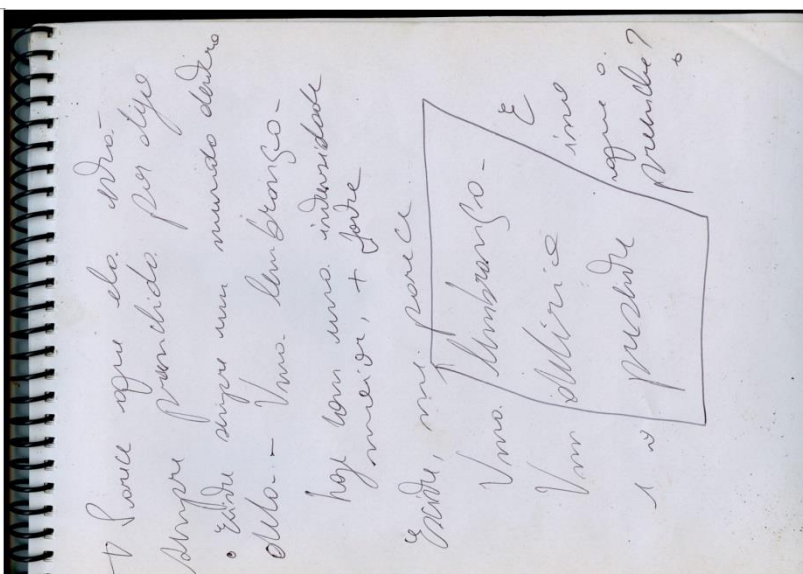 Parece que ela
sempre preenchida por algo
• Existe sempre um mundo dentro
dela - Uma lembrança -
hoje com uma intensidade
maior, + forte
Existe, me parece
Uma lembrança -
Um delírio
presente
E
isso
que o
preenche?